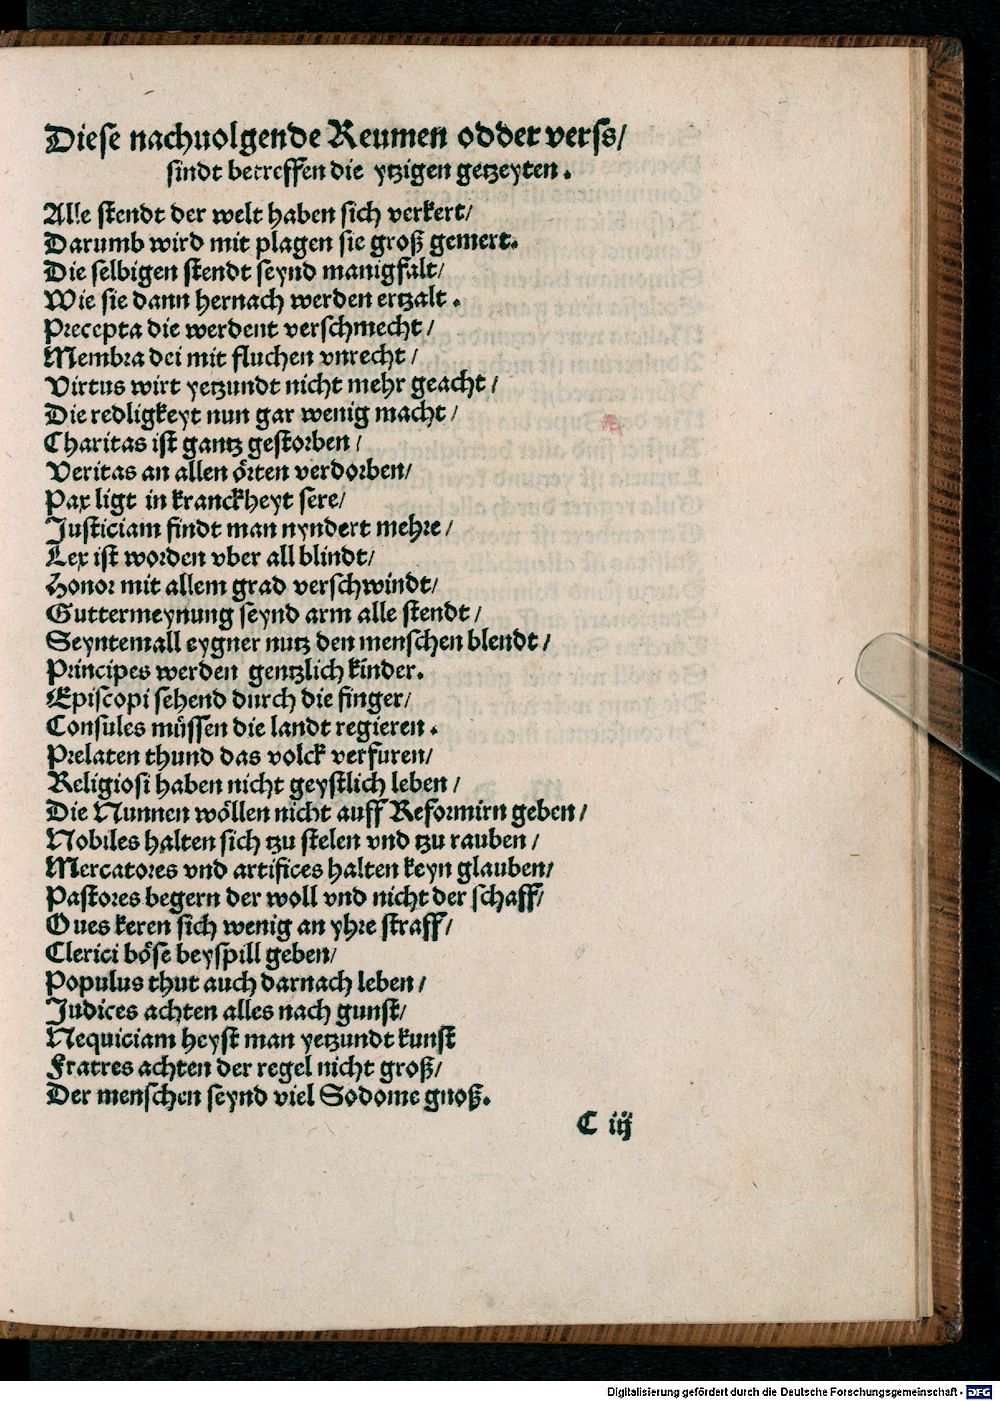 Diese nachuolgende Reumen odder verss/
sindt betreffen die ytzigen getzeyten.
Alle stendt der welt haben sich verkert/
Darumb wird mit plagen sie groß gemert.
Die selbigen stendt seynd manigfalt/
Wie sie dann hernach werden ertzalt.
Precepta die werdent verschmecht/
Membra dei mit fluchen vnrecht/
Virtus wirt yetzundt nicht mehr geacht/
Die redligkeyt nun gar wenig macht/
Charitas ist gantz gestorben/
Veritas an allen örten verdorben/
Pax ligt in kranckheyt sere/
Justiciam findt man nyndert mehre/
Lex ist worden vber all blindt/
Honor mit allem grad verschwindt/
Guttermeynung seynd arm alle stendt/
Seyntemall eygner nutz den menschen blendt/
Principes werden gentzlich kinder.
Episcopi sehend durch die finger/
Consules müssen die landt regieren.
Prelaten thund das volck verfuren/
Religiosi haben nicht geystlich leben/
Die Nunnen wöllen nicht auff Reformirn geben/
Nobiles halten sich tzu stelen vnd tzu rauben/
Mercatores vnd artifices halten keyn glauben/
Pastores begern der woll vnd nicht der schaff/
Oues keren sich wenig an yhre straff/
Clerici böse beyspill geben/
Populus thut auch darnach leben/
Judices achten alles nach gunst/
Nequiciam heyst man yetzundt kunst
Fratres achten der regel nicht groß/
Der menschen seynd viel Sodome gnoß.
C iij
Digitalisierung gefördert durch die Deutsche Forschungsgemeinschaft - DFG